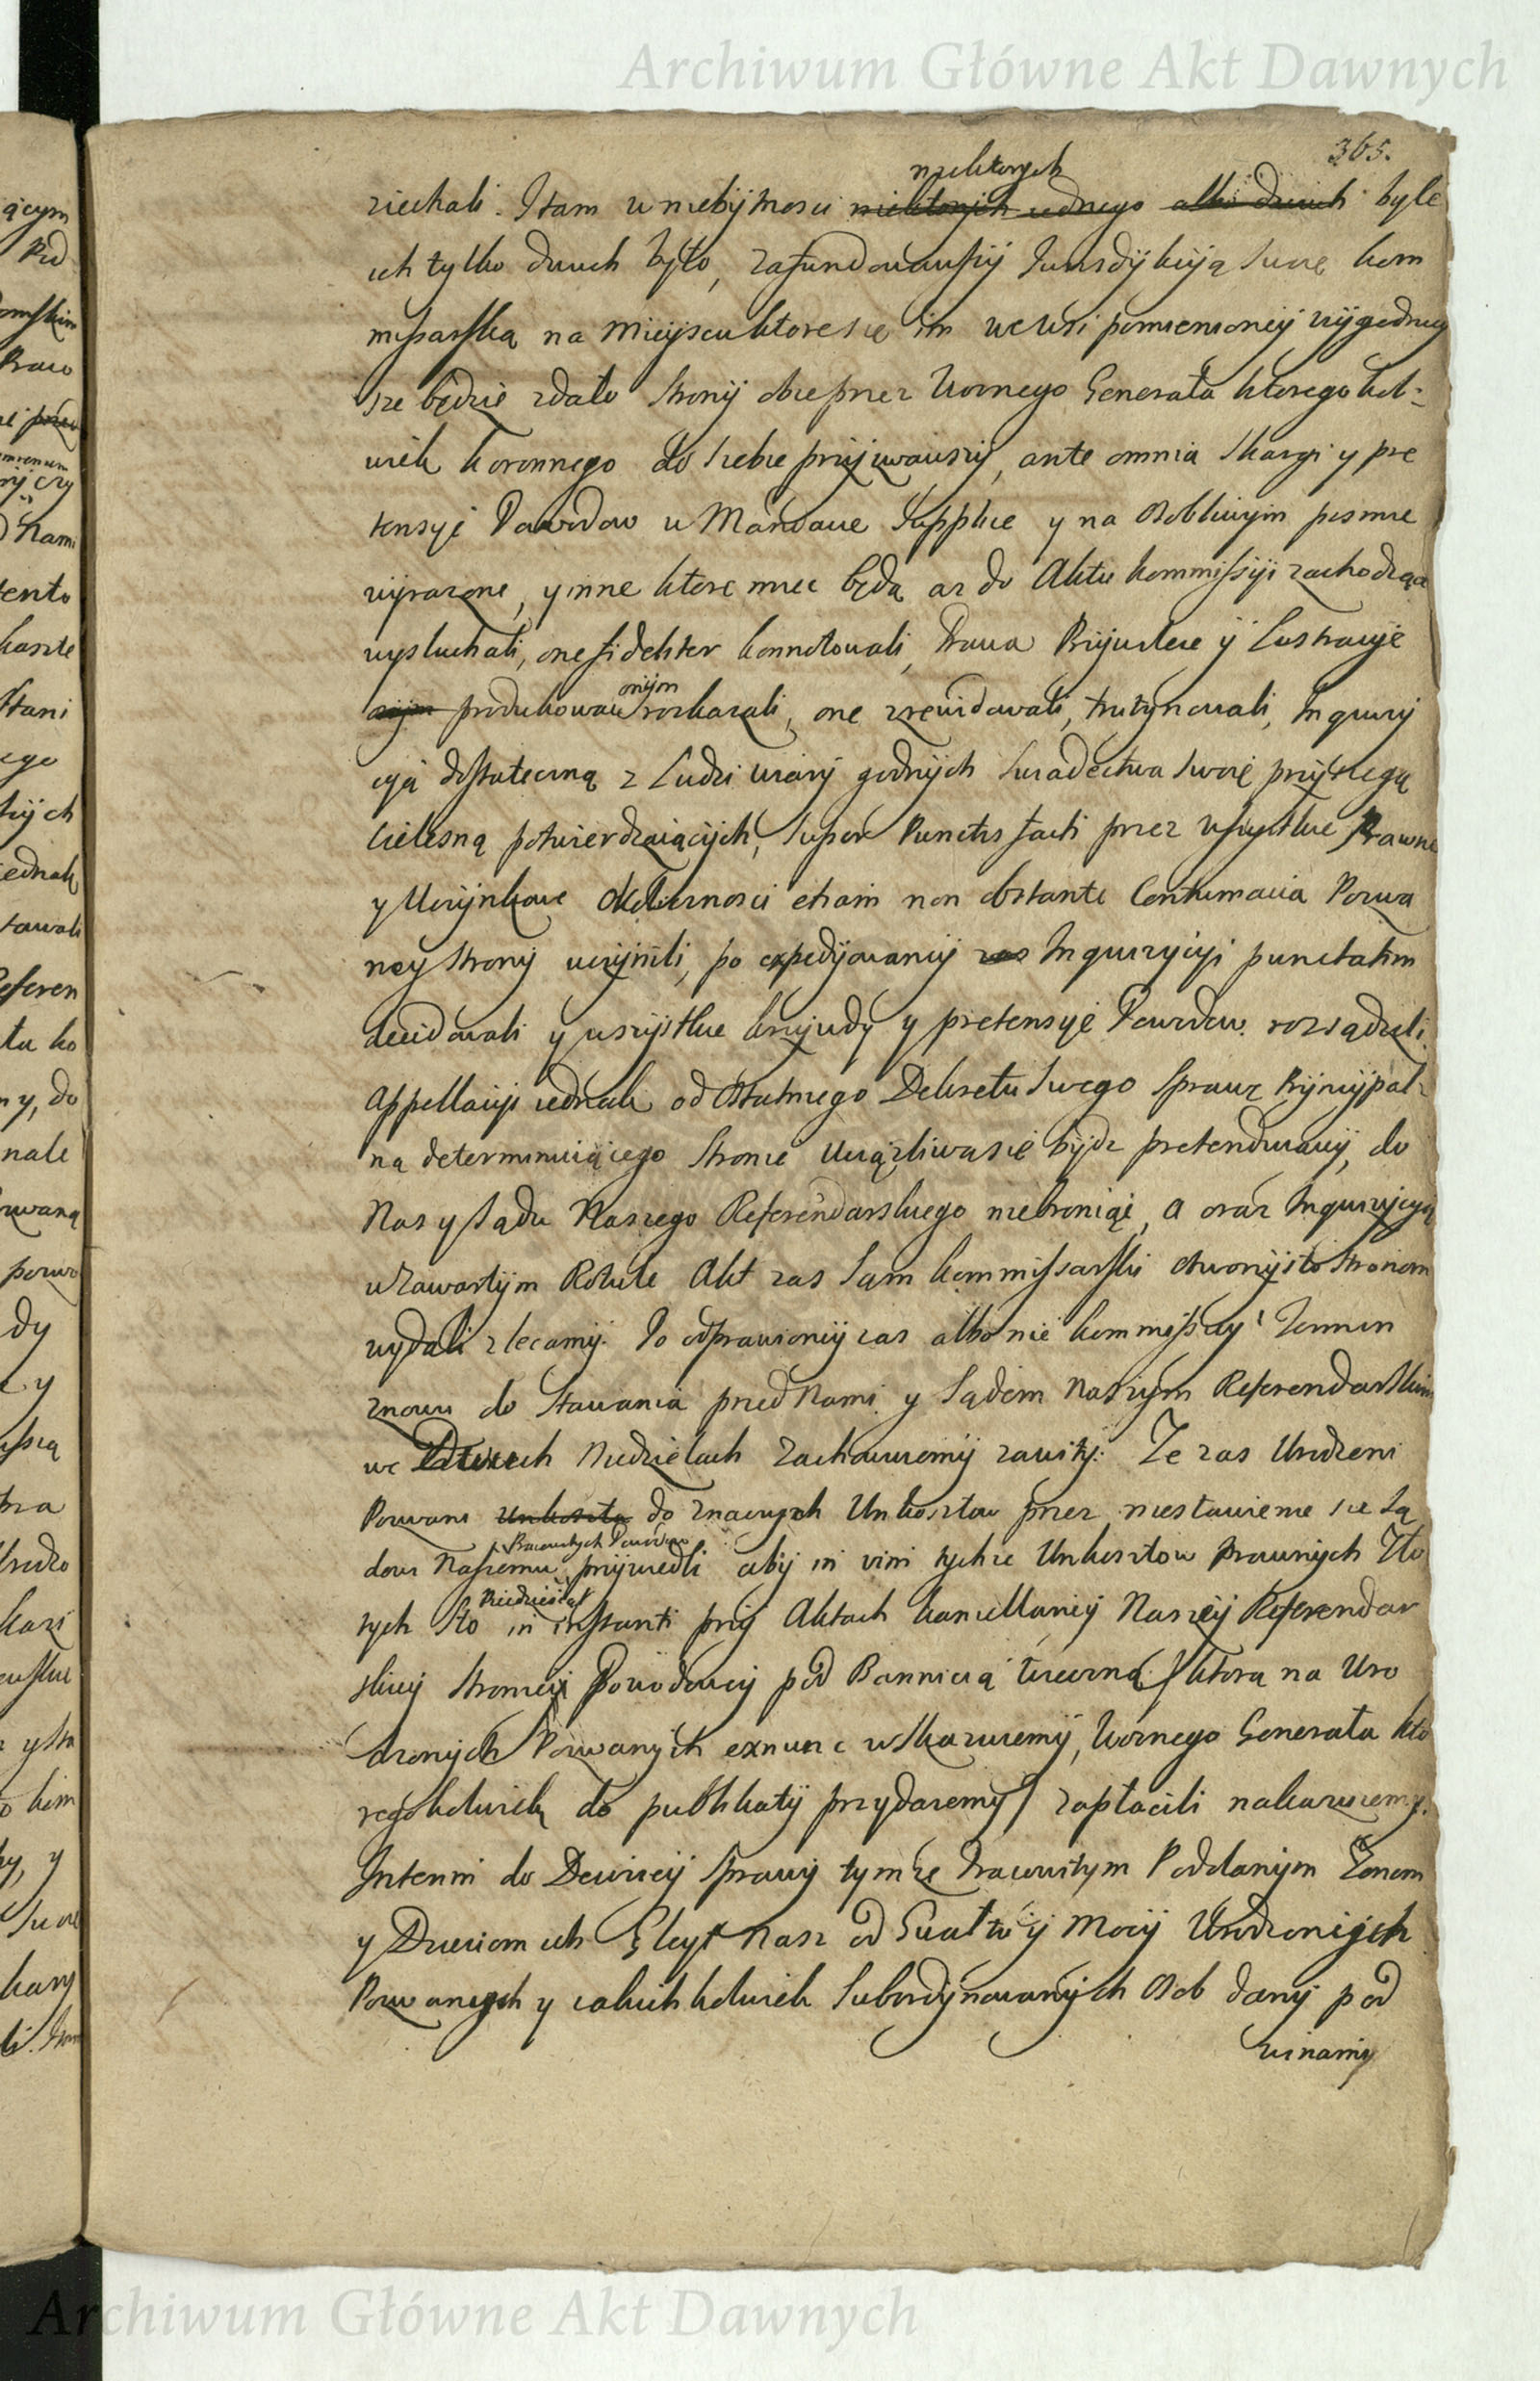 Archiwum Główne Akt Dawnych
365.
niektorych
ziechali. I tam w niebytnosci niektorych iednego albo dwuch byle
ich tylko dwuch było, zafundowawszy Jurisdykcyją swoię kom
missarską na Mieyscu ktore się im we wsi pomienioney wygodniey
sze będzie zdało Strony obie przez Woznego Generała ktoregokol-
wiek koronnego do siebie przyzwawszy, ante omnia Skargi y pre
tensye Powodow w Mandacie Supplice y na osobliwym pismie
wyrazone, y inne ktore miec będą az do Aktu kommissyi zachodzące
wysłuchali, one fideliter konnotowali, Prawa Przywileie y Lustracye
onym
onym produkowac rozkazali, one zrewidowali, trutynowali, Inquizy
cyą dostateczną z Ludzi wiary godnych swiadectwa swoię przysięgą
cielesną potwierdzaiących, super Punctis facti przez wszystkie Prawne
y Uczynkowe okolicznosci etiam non obstante Contumacia Pozwa
ney strony uczynili, po expedyowaniy zas Inquizycyi punctatim
decidowali y wszystkie krzywdy y pretensye Powodow rozsądzili.
Appellacyi iednak od Ostatniego Dekretu swego sprawę Pryncypal-
ną determinuiącego Stronie Uciązliwa się bydz pretenduiącey, do
Nas y Sądu Naszego Referendarskiego niebroniąc, a oraz Inquizycyą
w Zawartym Rotule Akt zas sam kommissarski otworzysto stronom
wydali zlecamy. Po odprawioney zas albo nie kommissyi Termin
znowu do stawania przed Nami y Sądem Naszym Referendarskim
we Dwuch Niedzielach zachowuiemy zawity. Ze zas Urodzeni
Pozwani Unkoszta do znacznych Unkosztow przez niestawienie się Są
Pracowitych Powodow
dowi Naszemu przywiedli aby in vim tychze Unkosztow prawnych Zło
Piędziesiąt
tych sto in instanti przy Aktach kancellaryi Naszey Referendar
skiey stronie Powodowey pod Bannicią wieczną /: ktorą na Uro
dzonych Pozwanych ex nunc wskazuiemy, Woznego Generała kto
regokolwiek do publikaty przydaiemy / zapłacili nakazuiemy.
Interim do Dalszey sprawy tymze Pracowitym Poddanym Zonom
y Dzieciom ich Gleyt Nasz od Gwałtu y Mocy Urodzonych
Pozwanych y iakichkolwiek Subordynowanych Osob dany pod
winamy
Archiwum Główne Akt Dawnych